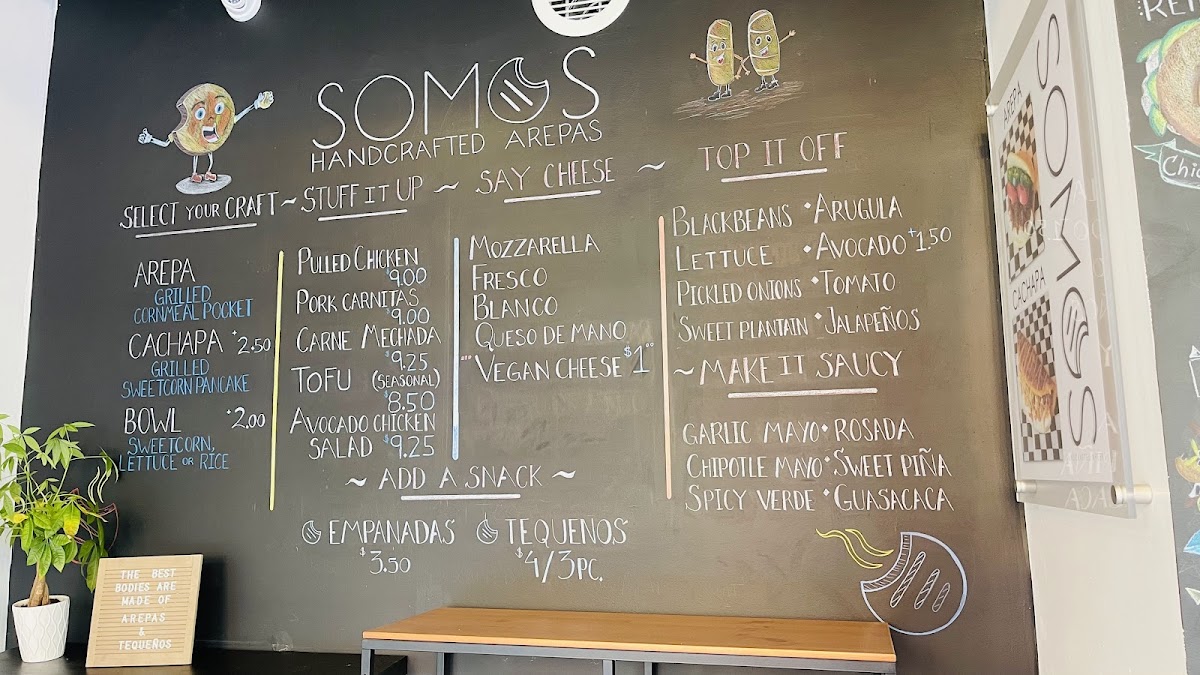 SOMOS
HANDCRAFTED AREPAS
SELECT YOUR CRAFT ~ STUFF IT UP ~ SAY CHEESE ~ TOP IT OFF
AREPA
GRILLED
CORNMEAL POCKET
CACHAPA +2.50
GRILLED
SWEETCORN PANCAKE
BOWL +2.00
SWEETCORN,
LETTUCE OR RICE
PULLED CHICKEN
$9.00
PORK CARNITAS
$9.00
CARNE MECHADA
$9.25
TOFU (SEASONAL)
$8.50
AVOCADO CHICKEN
SALAD $9.25
MOZZARELLA
FRESCO
BLANCO
QUESO DE MANO
VEGAN CHEESE $1.00
BLACKBEANS • ARUGULA
LETTUCE • AVOCADO +1.50
PICKLED ONIONS • TOMATO
SWEET PLANTAIN • JALAPEÑOS
~ MAKE IT SAUCY
GARLIC MAYO • ROSADA
CHIPOTLE MAYO • SWEET PIÑA
SPICY VERDE • GUASACACA
~ ADD A SNACK ~
EMPANADAS
$3.50
TEQUENOS
$4/3PC.
THE BEST
BODIES ARE
MADE OF
AREPAS
&
TEQUEÑOS
AREPA
CACHAPA
SOMOS